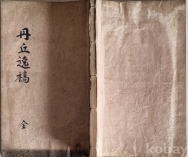 丹丘遺稿
全
kobay